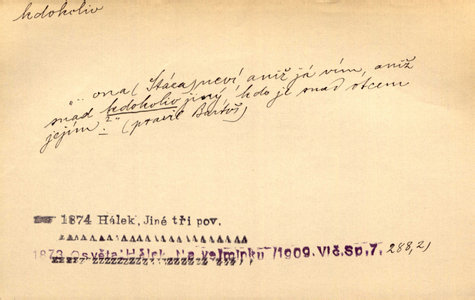 kdokoliv
„.. ona (Stáza) neví aniž já vím, aniž
snad kdokoliv jiný kdo je snad otcem
jejím.“ (pravil Bartoš)
1874 Hálek, Jiné tři pov.
1873 Osvěta Hálek, Na vejminku /1909. Vlč. Sp, 7. 288, 2)